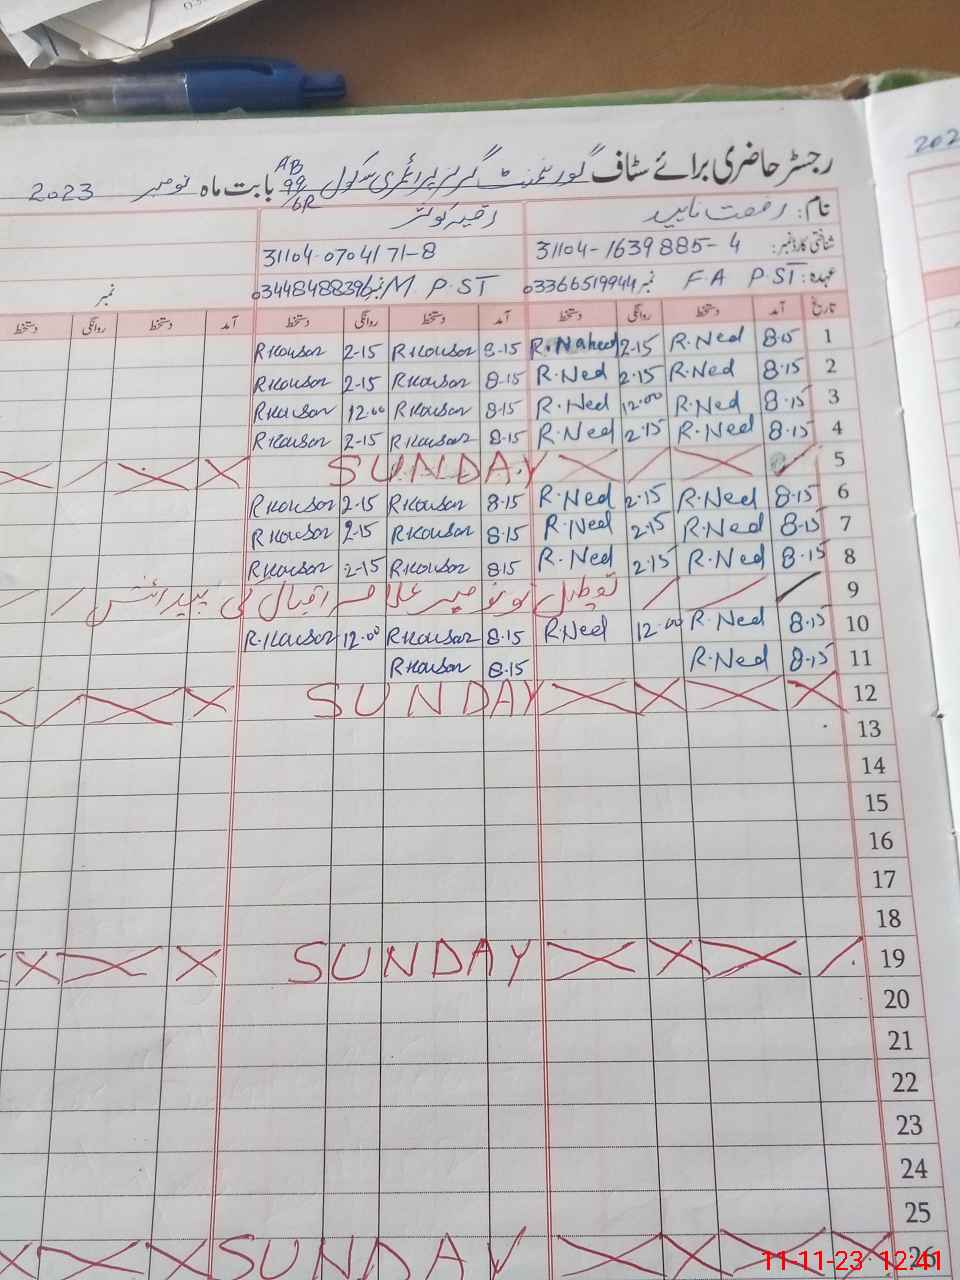 رجسٹر حاضری برائے سٹاف گورنمنٹ گرلز پرائمری سکول AB 99/6R بابت ماہ نومبر 2023
نام: رفعت ناہید
شناختی کارڈ نمبر: 31104-1639885-4 31104-0704171-8
عہدہ: FA P.ST نمبر 03366519944 M P.ST نمبر 03448488396 نمبر
تاریخ آمد دستخط روانگی دستخط آمد دستخط روانگی دستخط آمد دستخط روانگی دستخط
1 8.15 R.Ned 2-15 R.Naheed 8-15 R.Kousar 2-15 R.Kousar
2 8.15 R.Ned 2.15 R.Ned 8-15 R.Kousar 2-15 R.Kousar
3 8.15 R.Ned 12.00 R.Ned 8-15 R.Kousar 12.00 R.Kousar
4 8.15 R.Ned 2.15 R.Ned 8.15 R.Kousar 2-15 R.Kousar
5 SUNDAY
6 8.15 R.Ned 2.15 R.Ned 8-15 R.Kousar 2-15 R.Kousar
7 8.15 R.Ned 2.15 R.Ned 8.15 R.Kousar 2-15 R.Kousar
8 8.15 R.Ned 2.15 R.Ned 8.15 R.Kousar 2-15 R.Kousar
9 تعطیل نو نومبر علامہ اقبال کی پیدائش
10 8.15 R.Ned 12.00 R.Ned 8.15 R.Kousar 12.00 R.Kousar
11 8.15 R.Ned 8.15 R.Kousar
12 SUNDAY
13
14
15
16
17
18
19 SUNDAY
20
21
22
23
24
25
26 SUNDAY
11-11-23 12:41